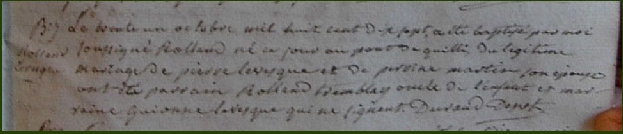 Le trente un octobre mil huit cent dix sept, a été baptisé par moi
Rolland soussigné Rolland né ce jour au pont de quilli du légitime
mariage de pierre levesque et de perrine martin son épouse
ont été parrain Rolland tremblay oncle de l'enfant et mar
raine Guionne levesque qui ne signent. Durand Desst